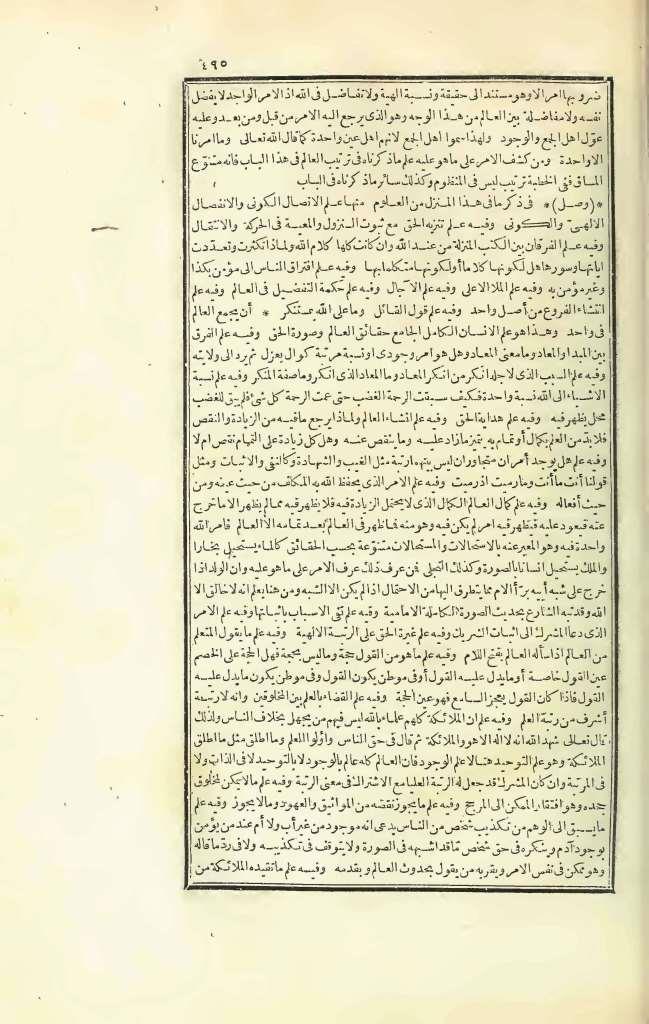 ٤٩٥
ضرو بها امر الا وهو مستند الى حقيقة ونسبة الهية ولا تفاضل فى الله اذ الامر الواحد لا يفضل
نفسه ولا مفاضلة بين العالم من هذا الوجه وهو الذى يرجع اليه الامر من قبل ومن بعد وعليه
عوّل اهل الجمع والوجود ولهذا سموا اهل الجمع لانهم اهل عين واحدة كما قال الله تعالى وما امرنا
الا واحدة ومن كشف الامر على ما هو عليه علم ما ذكرناه فى ترتيب العالم فى هذا الباب فانه متنوّع
المساق فنى الخطبة ترتيب ليس فى المنظوم وكذلك سائر ما ذكرناه فى الباب
*(وصل)* فى ذكر ما فى هذا المنزل من العلوم منها علم الاتصال الكونى والانفصال
الالهىّ والكونى وفيه علم تنزيه الحق مع ثبوت النزول والمعية فى الحركة والانتقال
وفيه علم الفرقان بين الكتب المنزلة من عند الله وان كانت كلها كلام الله ولماذا تكثرت وتعدّدت
اياتها وسورها هل لكونها كلاما أو لكونها متكلما بها وفيه علم افتراق الناس الى مؤمن بكذا
وغير مؤمن به وفيه علم الملا الاعلى وفيه علم الآجال وفيه علم حكمة التفضيل فى العالم وفيه علم
انتشاء الفروع من أصل واحد وفيه علم قول القائل وما على الله بمستنكر * أن يجمع العالم
فى واحد وهذا هو علم الانسان الكامل الجامع حقائق العالم وصورة الحق وفيه علم الفرق
بين المبدا والمعاد وما معنى المعاد وهل هو امر وجودى او نسبة مرتبة كوال يعزل ثم يرد الى ولايته
وفيه علم السبب الذى لاجله انكر من انكر المعاد وما المعاد الذى انكر وما صفة المنكر وفيه علم نسبة
الاشياء الى الله نسبة واحدة فكيف سبقت الرحمة الغضب حتى عمت الرحمة كل شئ فلم يبق للغضب
محل يظهر فيه وفيه علم هداية الحق وفيه علم انشاء العالم ولماذا يرجع ما فيه من الزيادة والنقص
فلا بدّ من العلم بكمال أو تمام به يتميز ما زاد عليه وما ينقص عنه وهل كل زيادة على التمام نقص ام لا
وفيه علم هل يوجد أمران متجاوران ليس بينهما رتبة مثل الغيب والشهادة وكالنفى والاثبات ومثل
قولنا أنت ما أنت وما رميت اذ رميت وفيه علم الامر الذى يحفظ الله به المكلف من حيث عينه ومن
حيث أفعاله وفيه علم كمال العالم الكمال الذى لا يحتمل الزيادة فيه فلا يظهر فيه مما لم يظهر الا ما خرج
عنه فيعود عليه فيظهر فيه امر لم يكن فيه وهو منه فما ظهر فى العالم بعد تمامه الا العالم فامر الله
واحدة فيه وهو المعبر عنه بالاستحالات والمستحالات متنوّعة بحسب الحقائق كالماء يستحيل بخارا
والملك يستحيل انسانا بالصورة وكذلك التجلى فمن عرف ذلك عرف الامر على ما هو عليه وان الولد اذا
خرج على شبه أبيه برّأ الام مما يتطرق اليها من الاحتمال اذ الم يكن الا الشبه ومن هنا يعلم انه لا خالق الا
الله وقد نبه الشارع بحديث الصورة الكاملة الامامية وفيه علم نفى الاسباب باثباتها وفيه علم الامر
الذى دعا المشرك الى اثبات الشريك وفيه علم غيرة الحق على الرتبة الالهية وفيه علم ما يقول المتعلم
من العالم اذا سأله العالم بفتح اللام وفيه علم ما هو من القول حجة وما ليس بحجة فهل الحجة على الخصم
عين القول خاصة أو ما يدل عليه القول أو فى موطن يكون القول وفى موطن يكون ما يدل عليه
القول فاذا كان القول يعجز السامع فهو عين الحجة وفيه علم القضاء بالعلم بين المخلوقين وانه لا رتبة
أشرف من رتبة العلم وفيه علم ان الملائكة كلهم علماء بالله ليس فيهم من يجهل بخلاف الناس ولذلك
قال تعالى شهد الله انه لا اله الا هو والملائكة ثم قال فى حق الناس واولوا العلم وما اطلق مثل ما اطلق
الملائكة وهو علم التوحيد هنا لا علم الوجود فان العالم كله عالم بالوجود لا بالتوحيد لا فى الذات ولا
فى المرتبة وان كان المشرك قد جعل له الرتبة العليا مع الاشتراك فى معنى الرتبة وفيه علم ما لا يمكن لمخلوق
جحده وهو افتقار الممكن الى المرجح وفيه علم ما يجوز نقضه من المواثيق والعهود وما لا يجوز وفيه علم
ما يسبق الى الوهم من تكذيب شخص من الناس يدعى انه موجود من غير أب ولا أم عند من يؤمن
بوجود آدم وينكره فى حق شخص ما قد اشبهه فى الصورة ولا يتوقف فى تكذيبه ولا فى ردّ ما قاله
وهو ممكن فى نفس الامر ويقربه من يقول بحدوث العالم وبقدمه وفيه علم ما تقيده الملائكة من